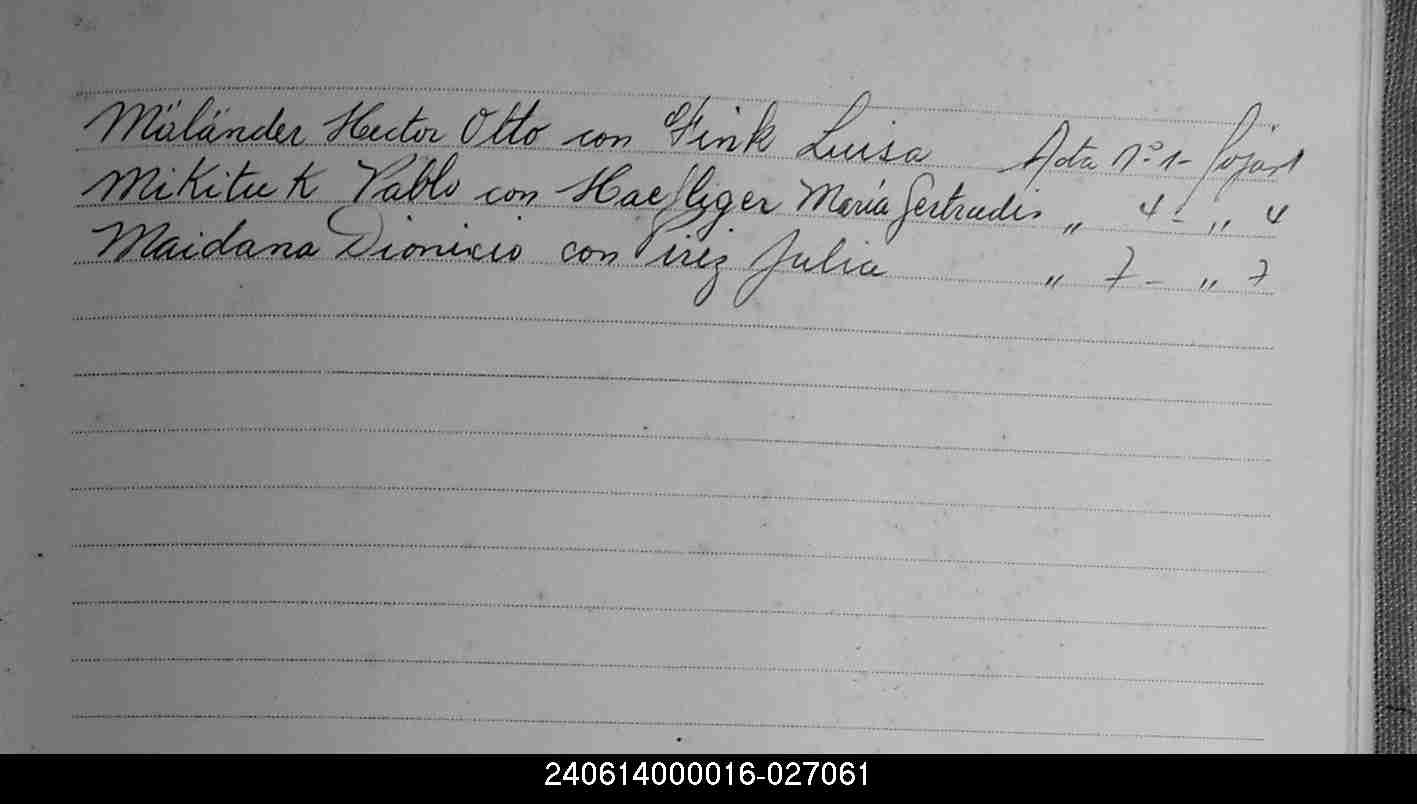 Mäländer Hector Otto con Fink Luisa Acta nº 1- fojas 1
Mikituk Pablo con Haefliger María Gertrudis " 4- " 4
Maidana Dionicio con Pirez Julia " 7- " 7
240614000016-027061